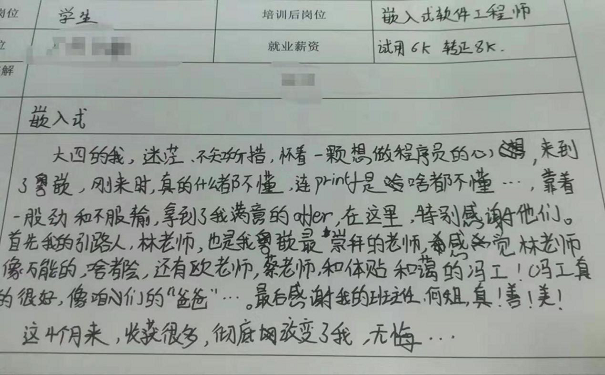 岗位 学生 培训后岗位 嵌入式软件工程师
位 就业薪资 试用6K 转正8K.
解
嵌入式
大四的我,迷茫、不知所措,怀着一颗想做程序员的心,来到
了粤嵌,刚来时,真的什么都不懂,连printf是啥都不懂…,靠着
一股劲和不服输,拿到了我满意的offer,在这里,特别感谢他们。
首先我的引路人,林老师,也是我粤嵌最崇拜的老师,感觉林老师
像万能的,啥都会,还有欧老师,蔡老师,和体贴和蔼的冯工!(冯工真
的很好,像咱们们的“爸爸”…。最后感谢我的班主任,何姐,真!善!美!
这4个月来,收获很多,彻底改变了我,无悔…